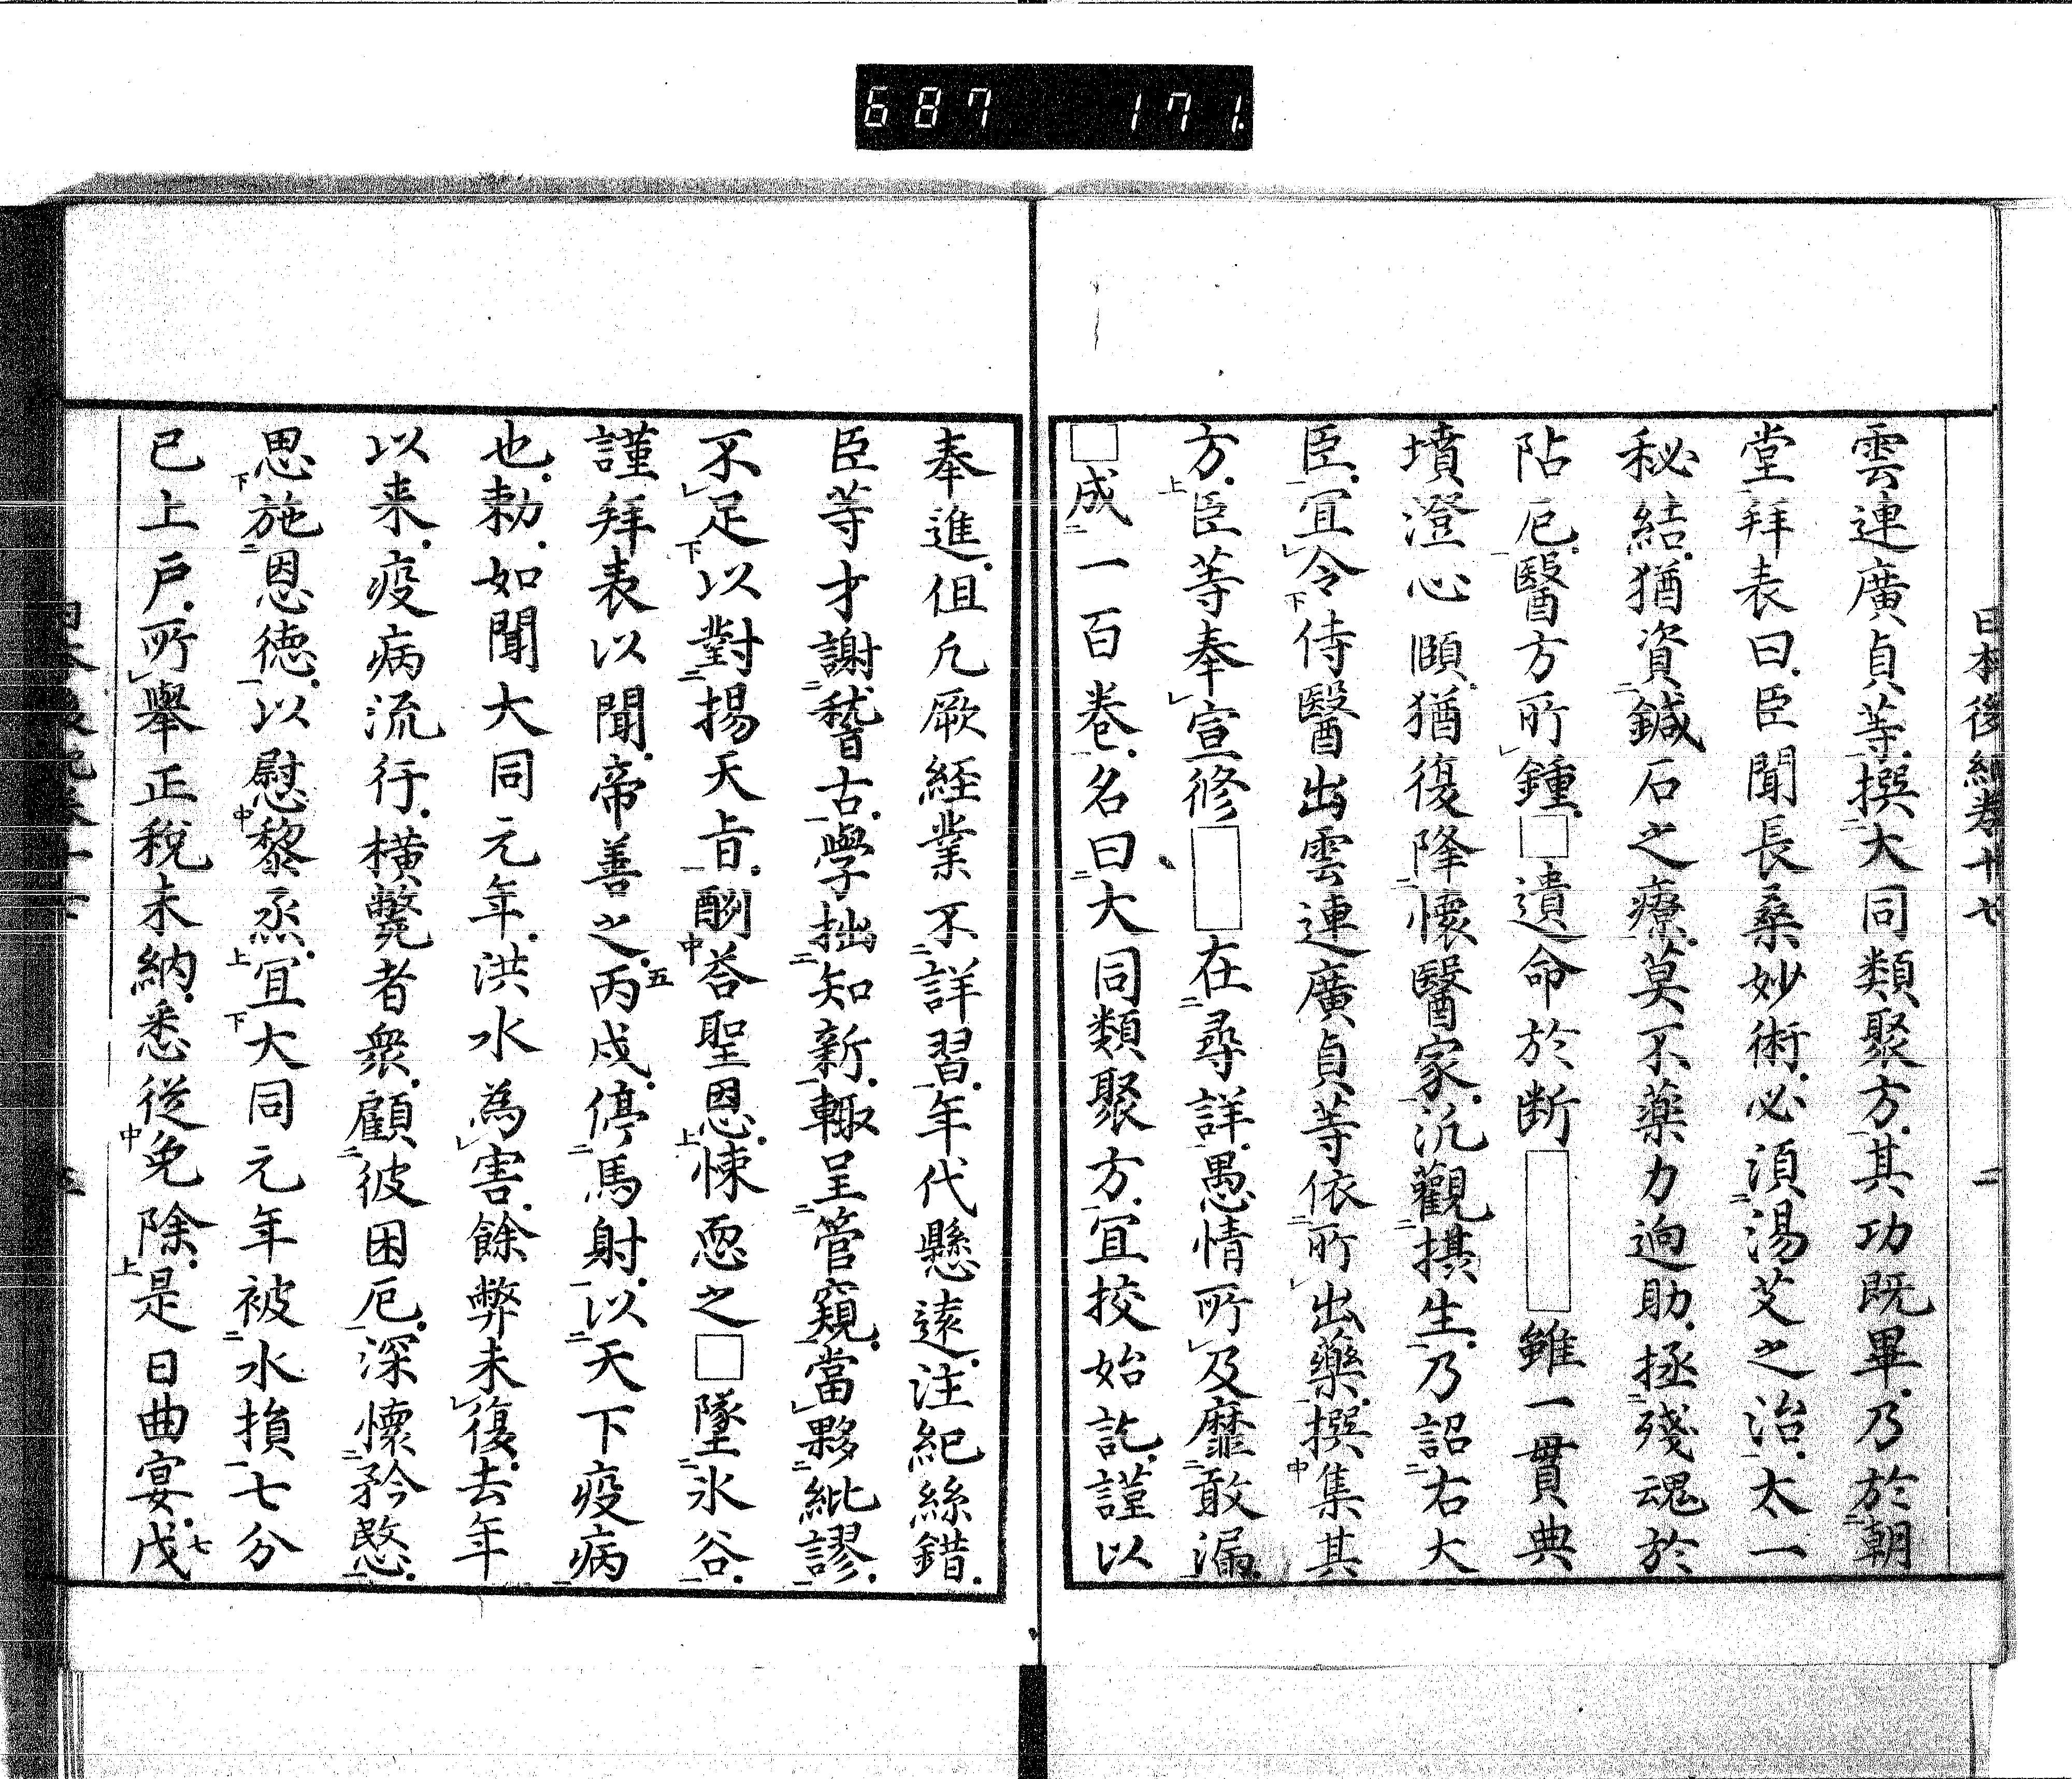 687 171
日本後紀卷十七 二
雲連廣貞等撰大同類聚方其功既畢乃於朝
堂拜表曰臣聞長桑妙術必須湯艾之治太一
秘結猶資鍼石之療莫不藥力逈助拯殘魂於
阽厄醫方所鍾□遺命於断□雖一貫典
墳澄心頤猶復降懷醫家汎觀摂生乃詔右大
臣宜令侍醫出雲連廣貞等依所出藥撰集其
方臣等奉宣修□在尋詳愚情所及靡敢漏
□成一百卷名曰大同類聚方宜挍始訖謹以
奉進但凡厥経業不詳習年代懸遠注紀絲錯
臣等才謝稽古學拙知新輙呈管窺當夥紕謬
不足以對揚天旨酬荅聖恩悚恧之□墜氷谷
謹拜表以聞帝善之丙戌五停馬射以天下疫病
也勅如聞大同元年洪水為害餘弊未復去年
以来疫病流行横斃者衆顧彼困厄深懷矜愍
思施恩徳以慰黎烝宜大同元年被水損七分
已上戸所舉正税未納悉從免除是日曲宴戊七